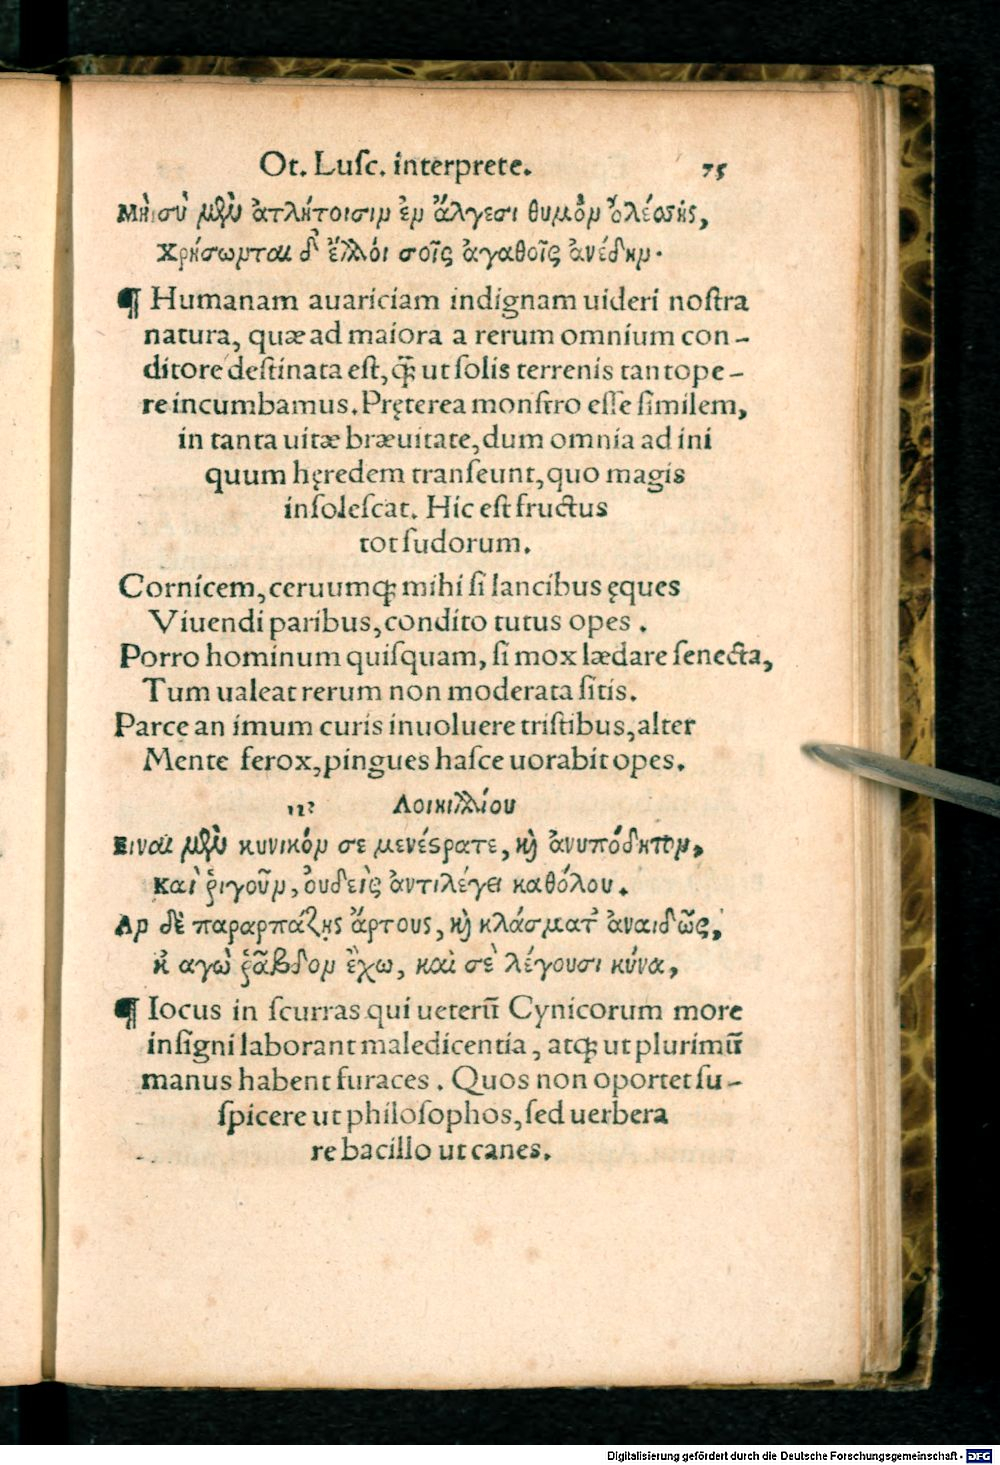 Ot. Lusc. interprete. 75
Μὴ σὺ μὲν ἀτλήτοισιν ἐν ἄλγεσι θυμὸν ὀλέσσῃς,
Χρήσωνται δ' ἄλλοι σοῖς ἀγαθοῖς ἀνέδην.
¶ Humanam auariciam indignam uideri nostra
natura, quæ ad maiora a rerum omnium con-
ditore destinata est, q̃ ut solis terrenis tantope-
re incumbamus. Pręterea monstro esse similem,
in tanta uitæ bræuitate, dum omnia ad ini
quum hęredem transeunt, quo magis
insolescat. Hic est fructus
tot sudorum.
Cornicem, ceruumq; mihi si lancibus ęques
Viuendi paribus, condito tutus opes .
Porro hominum quisquam, si mox lædare senecta,
Tum ualeat rerum non moderata sitis.
Parce an imum curis inuoluere tristibus, alter
Mente ferox, pingues hasce uorabit opes.
Λουκιλλίου
Εἶναι μὲν κυνικόν σε μενέστρατε, κὶ ἀνυπόδητον,
Καὶ ῥιγοῦν, ὀυδεὶς ἀντιλέγει καθόλου.
Αν δὲ παραρπάζῃς ἄρτους, κὶ κλάσματ' ἀναιδῶς,
Κ' ἀγὼ ῥάβδον ἔχω, καὶ σὲ λέγουσι κύνα,
¶ Iocus in scurras qui ueterũ Cynicorum more
insigni laborant maledicentia, atq; ut plurimũ
manus habent furaces . Quos non oportet su-
spicere ut philosophos, sed uerbera
re bacillo ut canes.
Digitalisierung gefördert durch die Deutsche Forschungsgemeinschaft - DFG